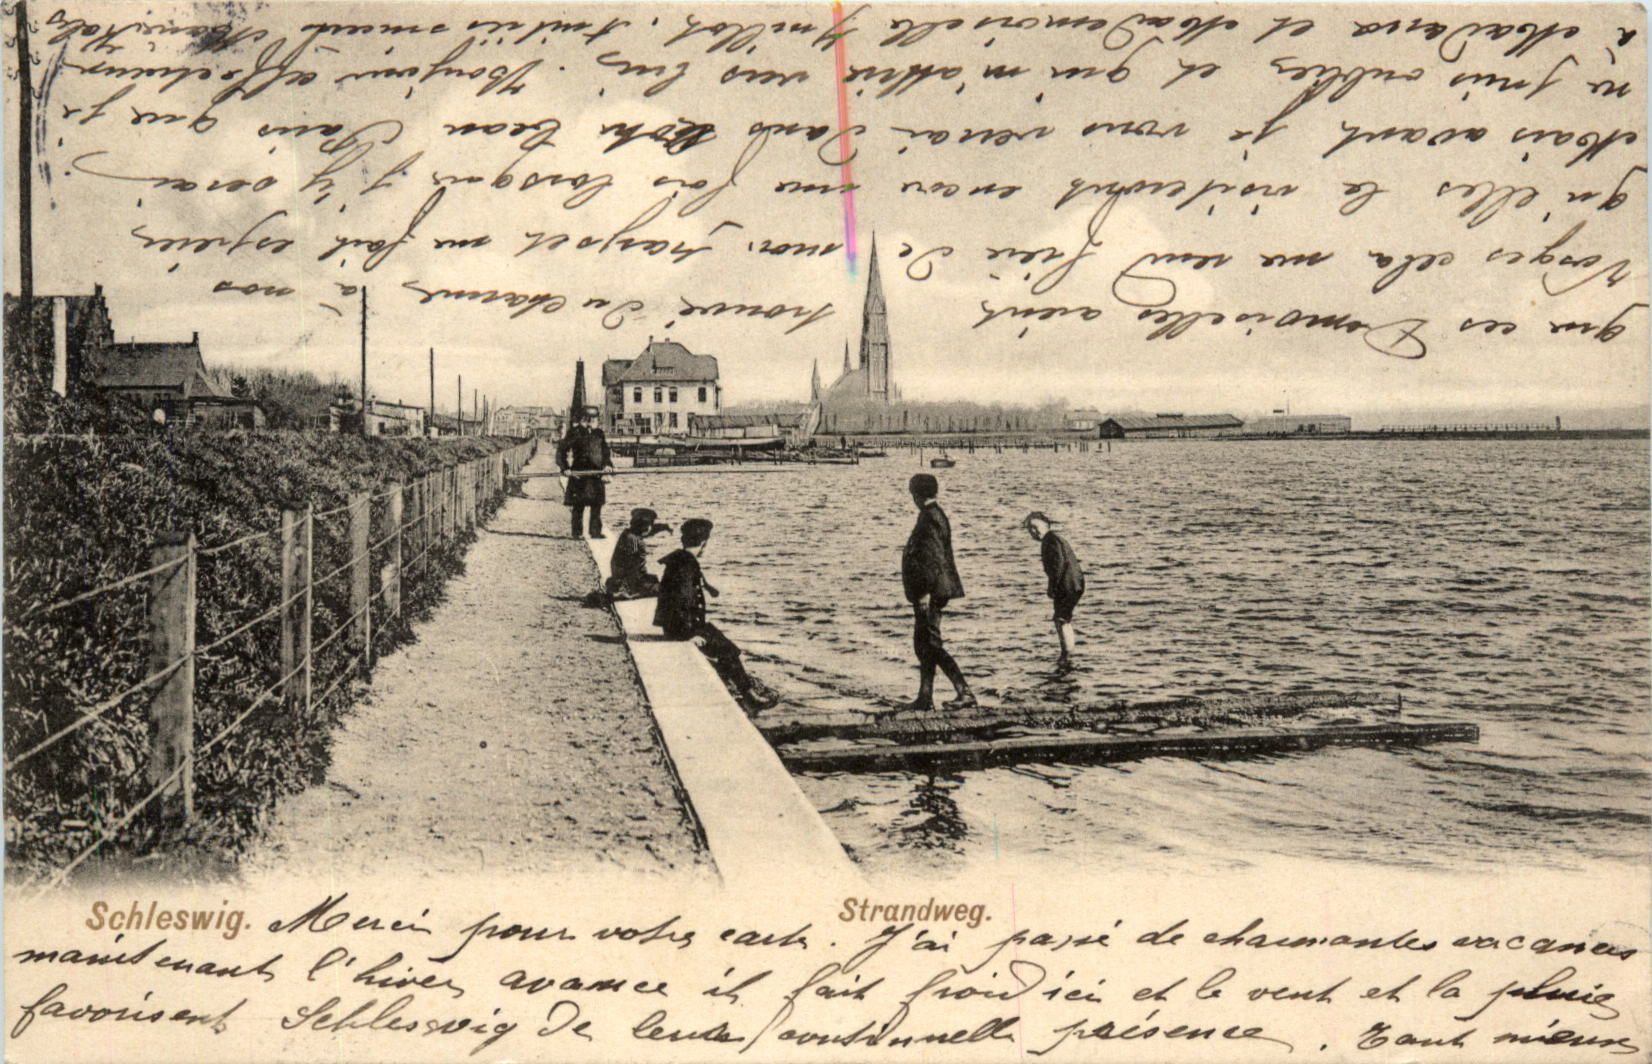 Schleswig.
Strandweg.
Merci pour votre carte. J'ai passé de charmantes vacances
maintenant l'hiver avance il fait froid ici et le vent et la pluie
favorisent Schleswig de leur continuelle présence. Tant mieux
que ces Demoiselles aient trouvé du charme à nos
Vosges cela me rend fière de mon pays et me fait espérer
qu'elles le visiteront encore une fois lorsque j'y serai.
Mais avant je vous verrai dans votre beau Paris que je
ne puis oublier et qui m'attire vers lui. Bonjour affectueux
à Madame et Mademoiselle Amitiés